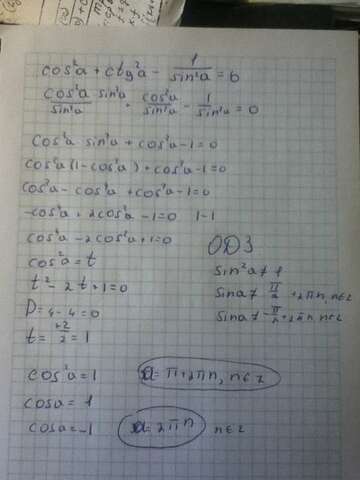 cos²a + ctg²a - 1/sin²a = 0
cos²a sin²a/sin²a + cos²a/sin²a - 1/sin²a = 0
cos²a sin²a + cos²a - 1 = 0
cos²a (1 - cos²a) + cos²a - 1 = 0
cos²a - cos⁴a + cos²a - 1 = 0
-cos⁴a + 2cos²a - 1 = 0 |·-1
cos⁴a - 2cos²a + 1 = 0
ОДЗ
cos²a = t
sin²a ≠ 1
t² - 2t + 1 = 0
sina ≠ π/2 + 2πn, n∈z
D = 4 - 4 = 0
sina ≠ -π/2 + 2πn, n∈z
t = +2/2 = 1
cos²a = 1
a = π + 2πn, n∈z
cosa = 1
cosa = -1
a = 2πn
n∈z